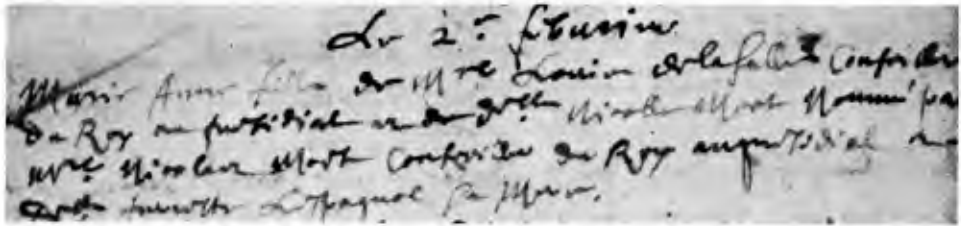 Le 2.e febvrier
Marie Anne fille de Mre Louis de la Salle Conseiller
du Roy au presidial et de dlle Nicolle Moët Nommé par
Mre Nicolas Moët Conseiller du Roy au presidial
Lespagnol sa Mere.